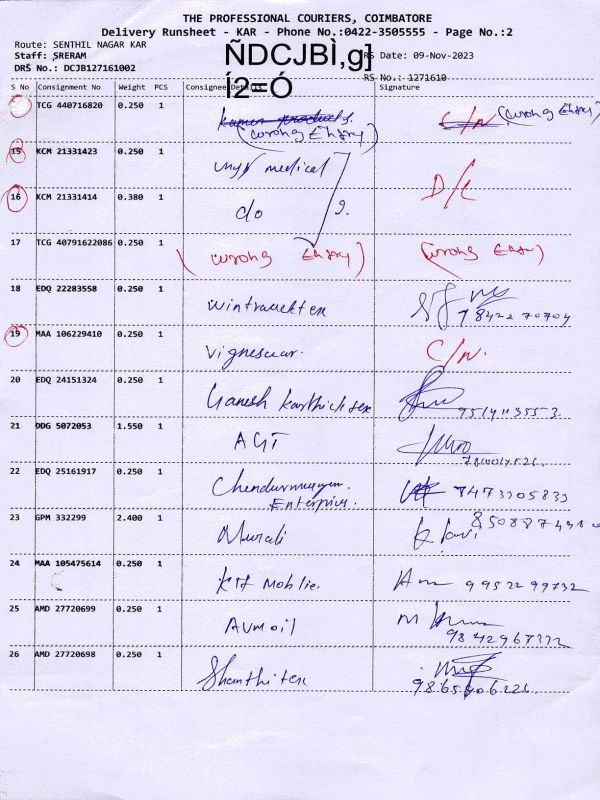 THE PROFESSIONAL COURIERS, COIMBATORE
Delivery Runsheet - KAR - Phone No.:0422-3505555 - Page No.:2
Route: SENTHIL NAGAR KAR
Staff: SRERAM
ÑDCJBÌ,g]
RS Date: 09-Nov-2023
DRS No.: DCJB127161002
Í2=Ó
RS No.: 1271610
S No Consignment No Weight PCS Consignee Details Signature
TCG 440716820 0.250 1
(wrong Entry) C/N. (wrong Entry)
15 KCM 21331423 0.250 1 medical
16 KCM 21331414 0.380 1 do D/L
17 TCG 40791622086 0.250 1 (wrong Entry) (wrong Entry)
18 EDQ 22283558 0.250 1
19 MAA 106229410 0.250 1 C/N.
20 EDQ 24151324 0.250 1 Ganesh Karthick tex
21 DDG 5072053 1.550 1 AGT
22 EDQ 25161917 0.250 1
23 GPM 332299 2.400 1 Murali
24 MAA 105475614 0.250 1 9952299732
25 AMD 27720699 0.250 1 AVM oil
26 AMD 27720698 0.250 1 Shanthi tex